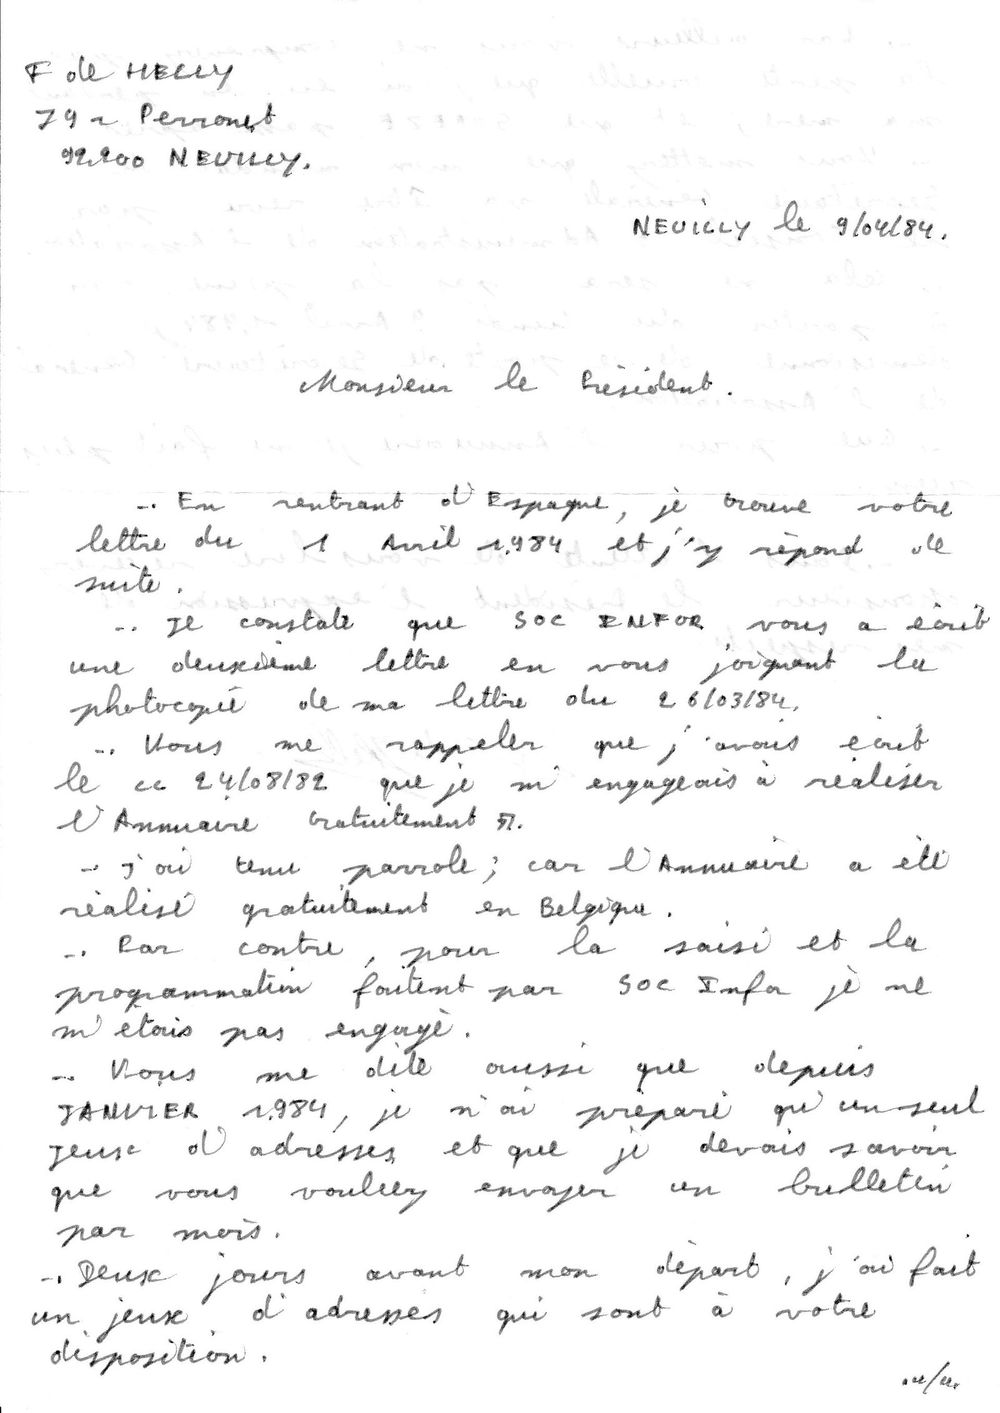 F de HELLY
79 r Perronet
92.200 NEUILLY.
NEUILLY le 9/04/84.
Monsieur le Président.
-. En rentrant d'Espagne, je trouve votre
lettre du 1 Avril 1.984 et j'y répond de
suite.
-. Je constate que SOC INFOR vous a écrit
une deuxième lettre en vous joignant la
photocopié de ma lettre du 26/03/84.
-. Vous me rappeler que j'avais écrit
le 24/08/82 que je m'engageais à réaliser
l'Annuaire Gratuitement
- J'ai tenu parrole; car l'Annuaire a été
réalisé gratuitement en Belgique.
-. Par contre, pour la saisi et la
programmation faitent par SOC Infor je ne
m'étais pas engagé.
-. Vous me dite aussi que depuis
JANVIER 1.984, je n'ai préparé qu'un seul
jeux d'adresses et que je devais savoir
que vous vouliez envoyer un bulletin
par mois.
-. Deux jours avant mon départ, j'ai fait
un jeux d'adresses qui sont à votre
disposition.
../..